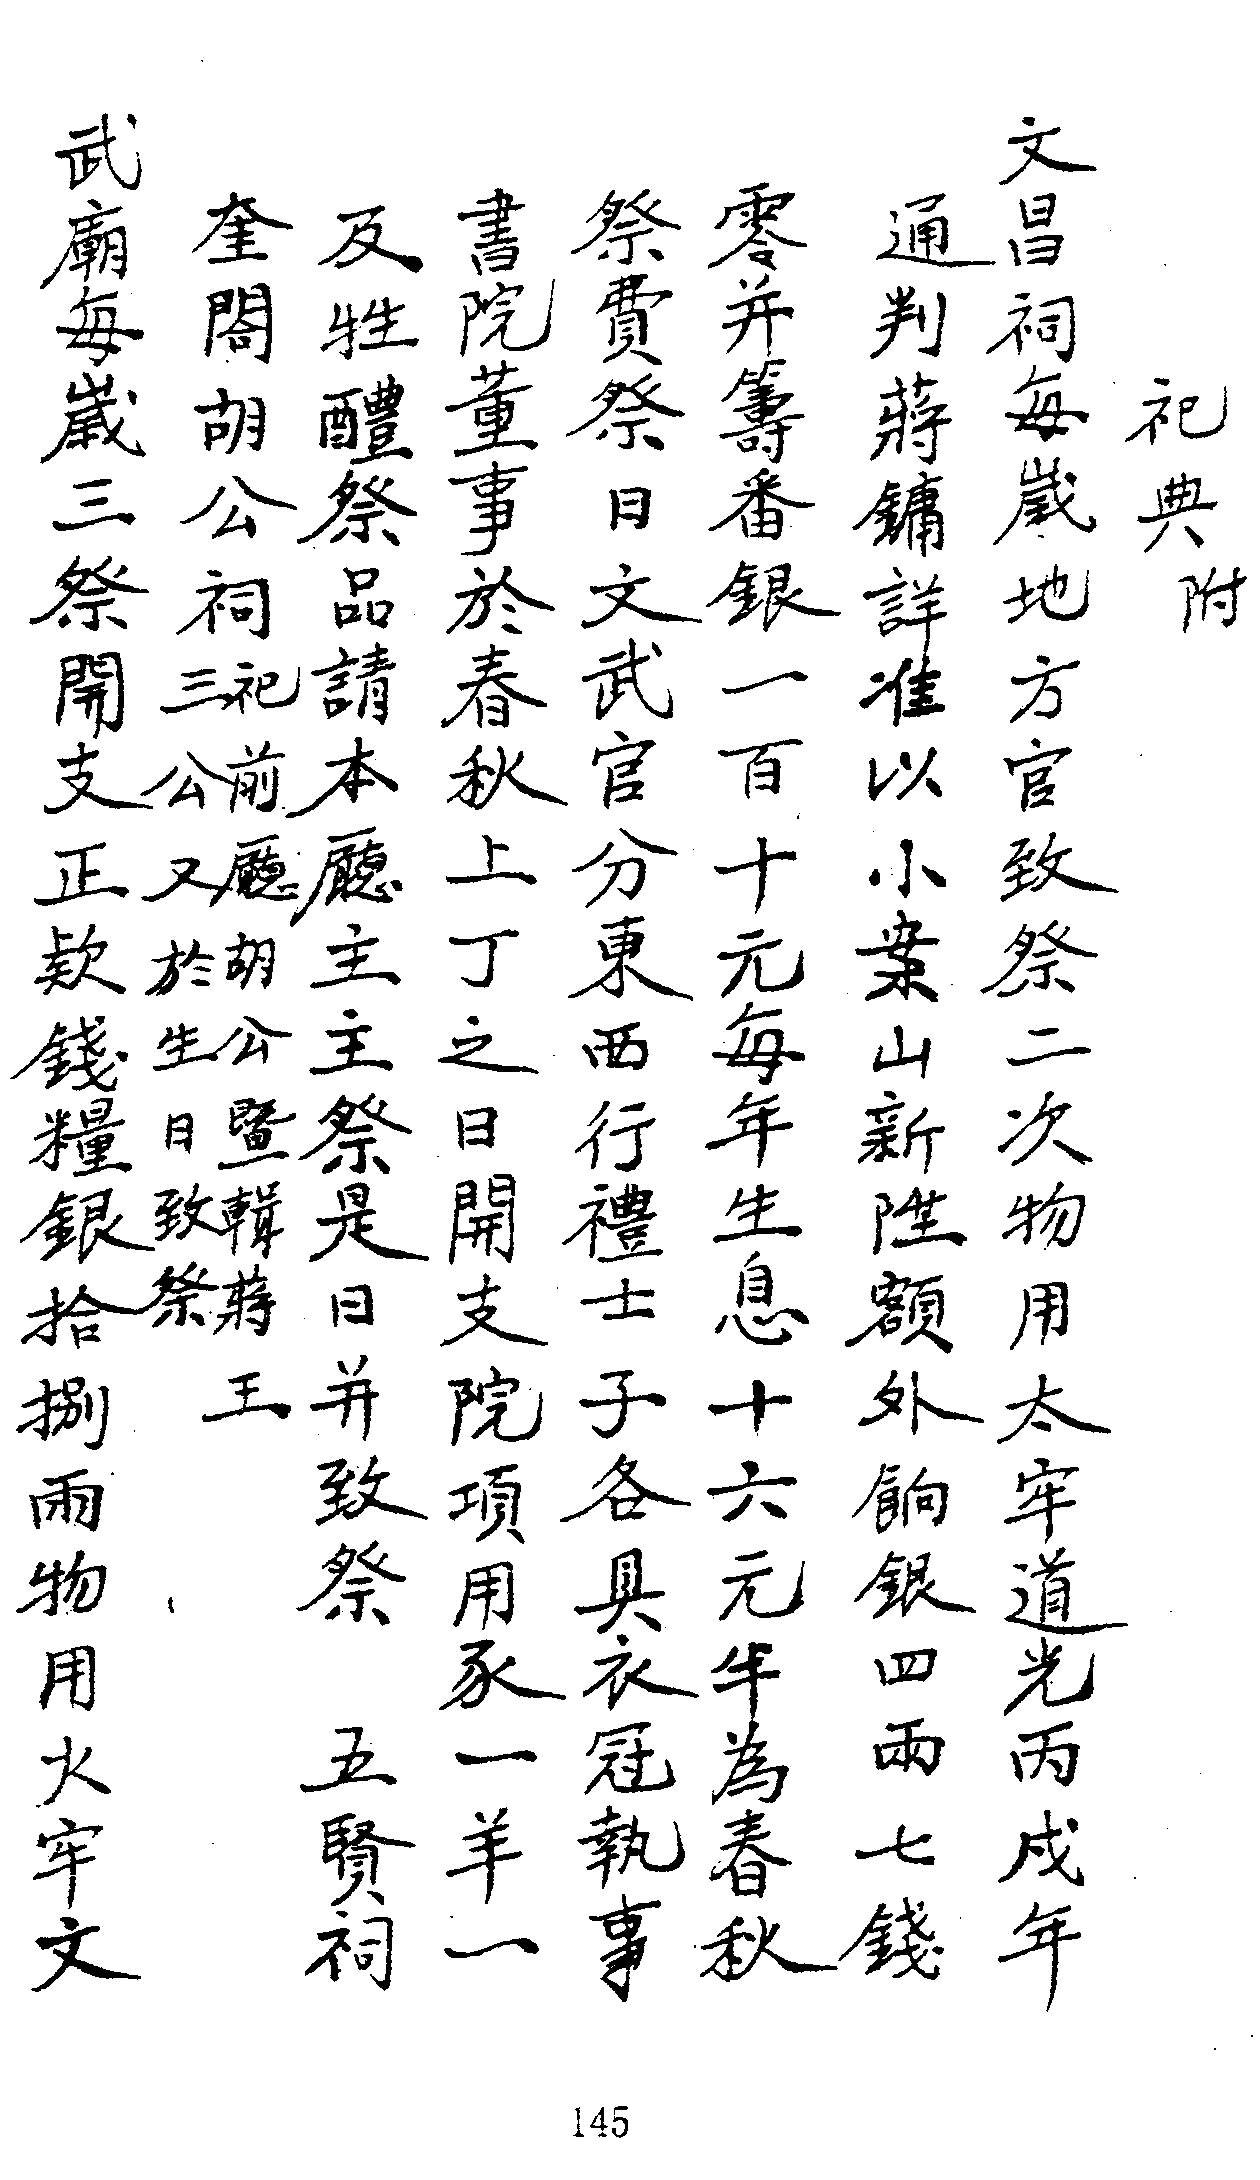 祀典附
文昌祠每嵗地方官致祭二次物用太牢道光丙戌年
通判蔣鏞詳准以小案山新陞額外餉銀四兩七錢
零并籌番銀一百十元每年生息十六元牛為春秋
祭費祭日文武官分東西行禮士子各具衣冠執事
書院董事於春秋上丁之日開支院項用豕一羊一
及牲醴祭品請本廳主主祭是日并致祭　五賢祠
奎閣胡公祠祀前廳胡公暨輯蔣王
三公又於生日致祭
武廟每嵗三祭開支正欵錢糧銀拾捌兩物用火牢文
145